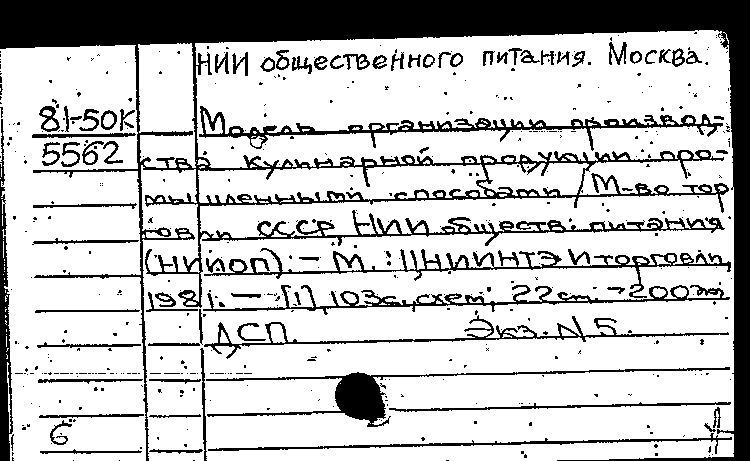 НИИ общественного питания. Москва.
81-50К Модель организации производ-
5562 ства кулинарной продукции про-
мышленными способами / М-во тор
говли СССР, НИИ обществ. питания
(НИИОП). – М. : ЦНИИТЭИторговли,
1981. – [1], 103 с., схем; 22 см. – 200 экз
ДСП. Экз. N 5.
6